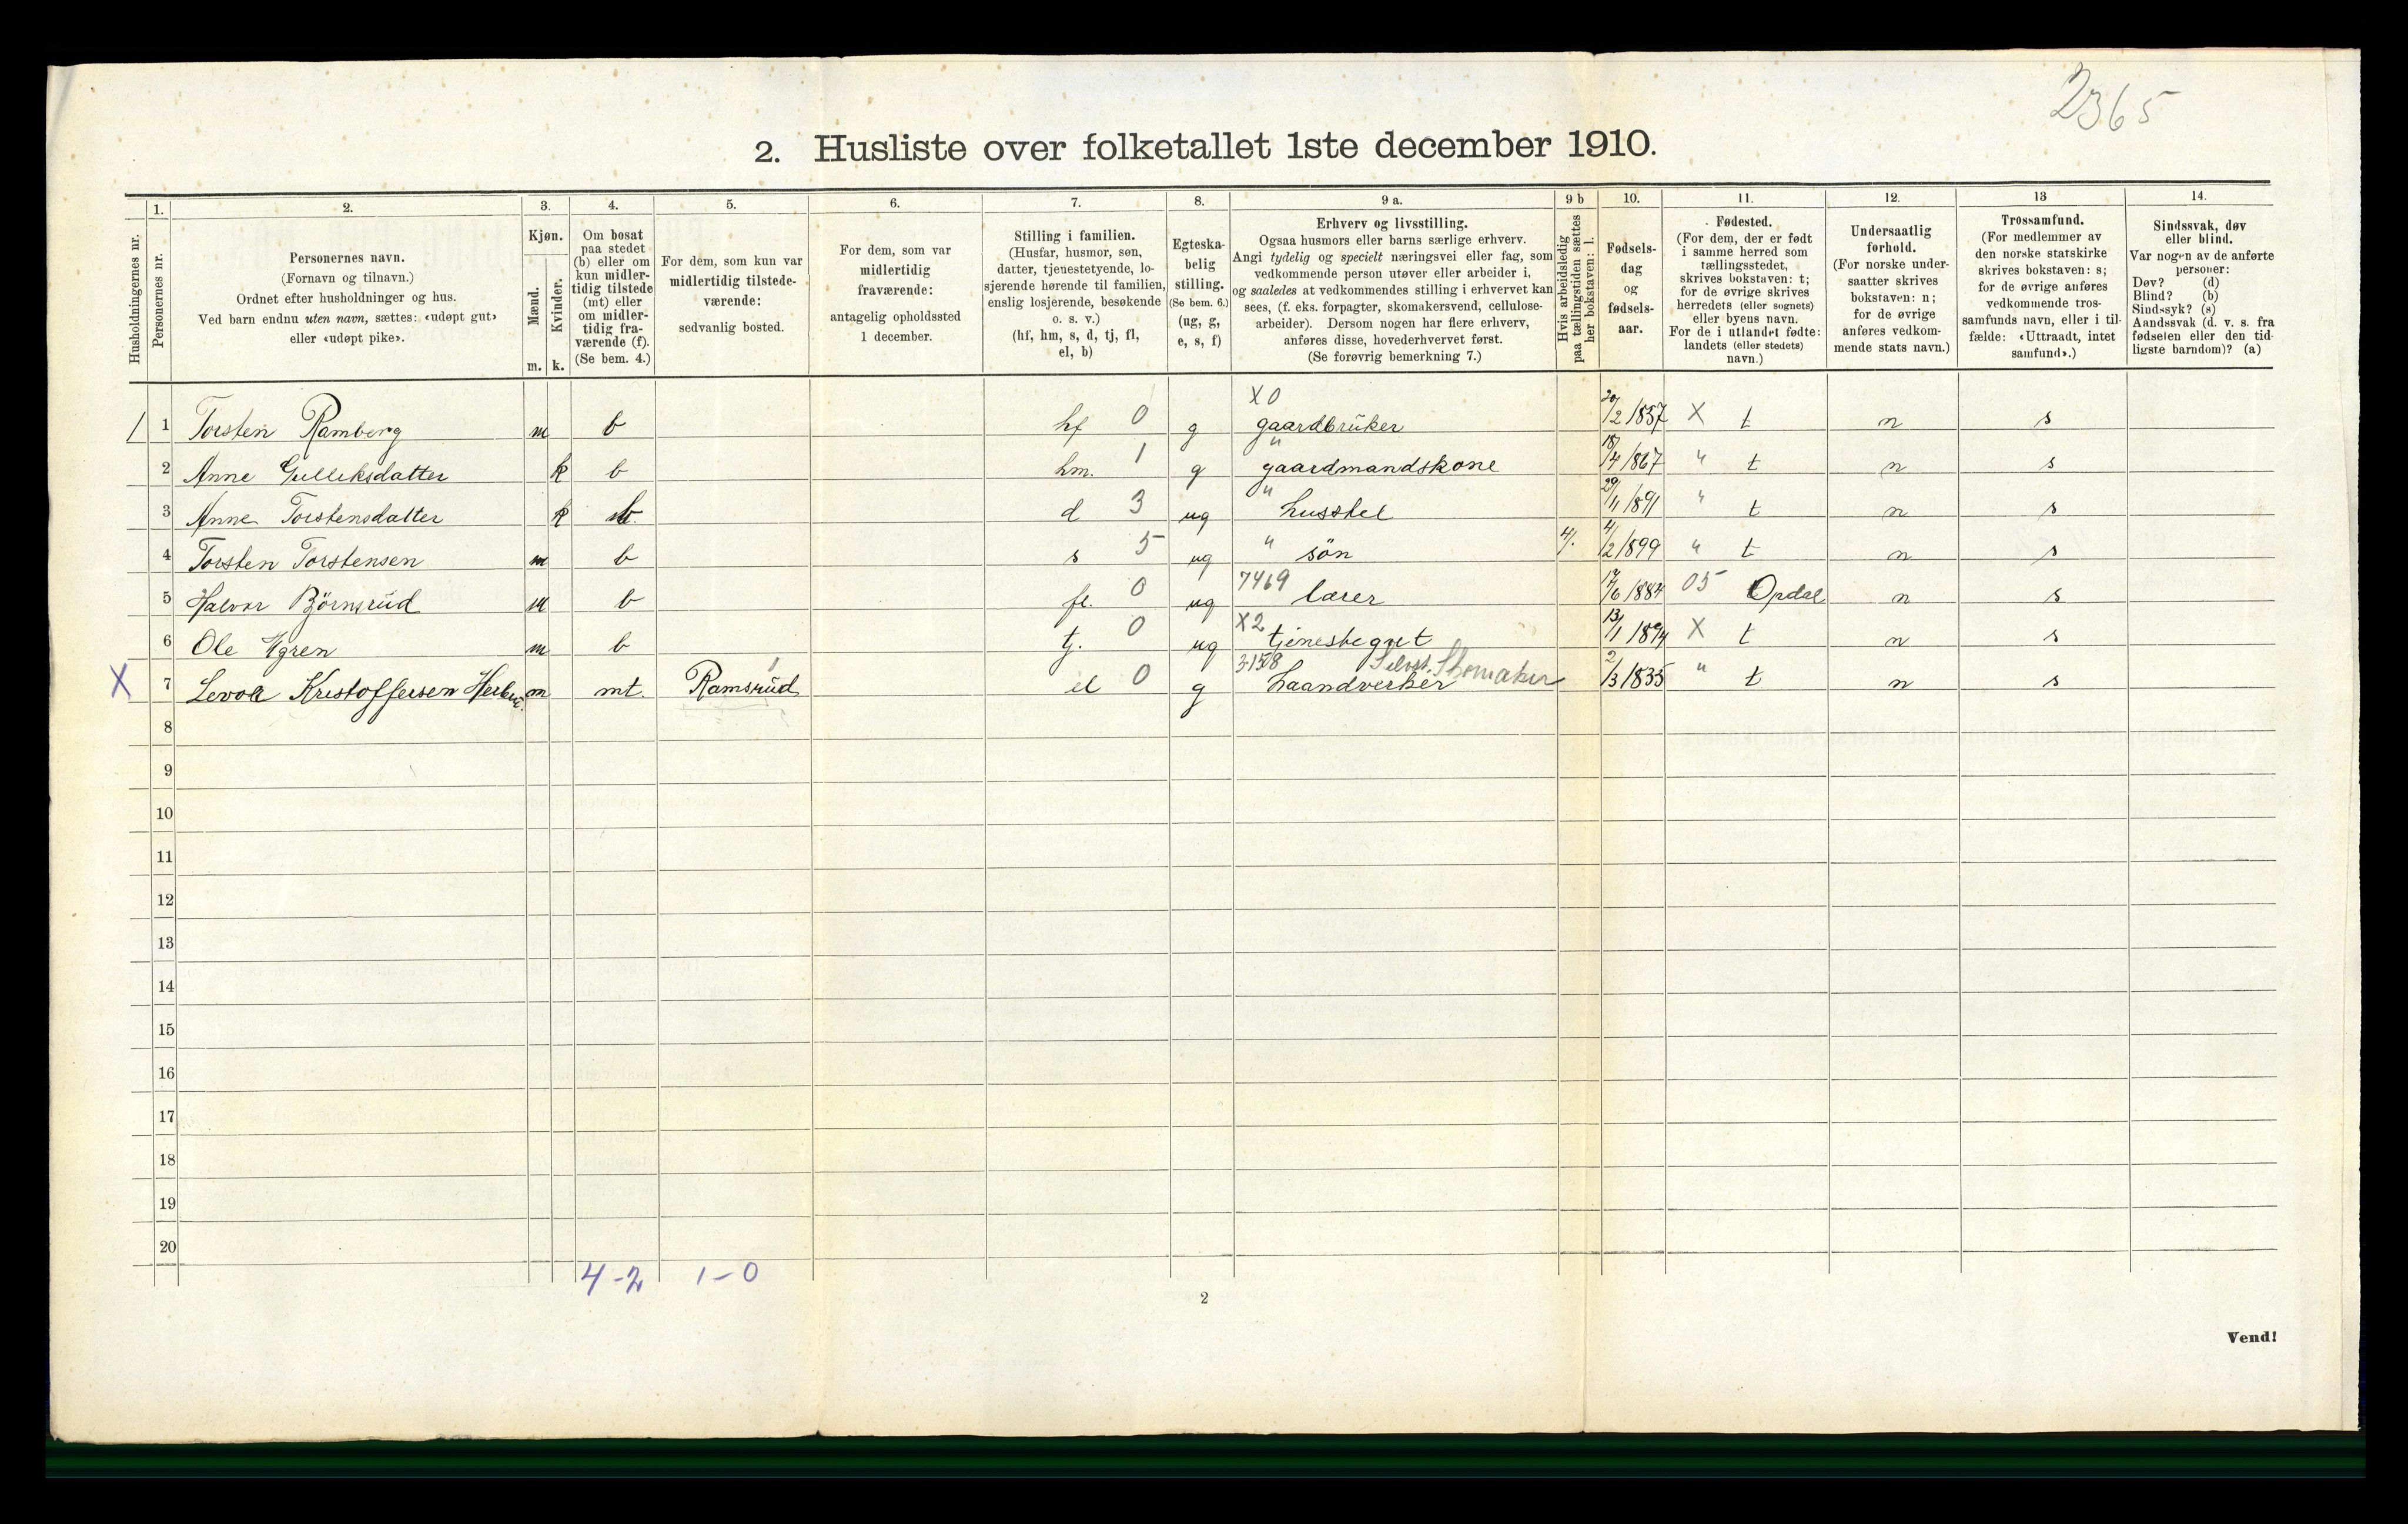 2365
2. Husliste over folketallet 1ste december 1910.
Husholdningernes nr.
1.
Personernes nr.
2.
Personernes navn.
(Fornavn og tilnavn.)
Ordnet efter husholdninger og hus.
Ved barn endnu uten navn, sættes: «udøpt gut»
eller «udøpt pike».
3.
Kjøn.
Mænd.
Kvinder.
m. k.
4.
Om bosat
paa stedet
(b) eller om
kun midler-
tidig tilstede
(mt) eller
om midler-
tidig fra-
værende (f).
(Se bem. 4.)
5.
For dem, som kun var
midlertidig tilstede-
værende:
sedvanlig bosted.
6.
For dem, som var
midlertidig
fraværende:
antagelig opholdssted
1 december.
7.
Stilling i familien.
(Husfar, husmor, søn,
datter, tjenestetyende, lo-
sjerende hørende til familien,
enslig losjerende, besøkende
o. s. v.)
(hf, hm, s, d, tj, fl,
el, b)
8.
Egteska-
belig
stilling.
(Se bem. 6.)
(ug, g,
e, s, f)
9 a.
Erhverv og livsstilling.
Ogsaa husmors eller barns særlige erhverv.
Angi tydelig og specielt næringsvei eller fag, som
vedkommende person utøver eller arbeider i,
og saaledes at vedkommendes stilling i erhvervet kan
sees, (f. eks. forpagter, skomakersvend, cellulose-
arbeider). Dersom nogen har flere erhverv,
anføres disse, hovederhvervet først.
(Se forøvrig bemerkning 7.)
9 b
Hvis arbeidsledig
paa tællingstiden sættes
her bokstaven: l.
10.
Fødsels-
dag
og
fødsels-
aar.
11.
Fødested.
(For dem, der er født
i samme herred som
tællingsstedet,
skrives bokstaven: t;
for de øvrige skrives
herredets (eller sognets)
eller byens navn.
For de i utlandet fødte:
landets (eller stedets)
navn.)
12.
Undersaatlig
forhold.
(For norske under-
saatter skrives
bokstaven: n;
for de øvrige
anføres vedkom-
mende stats navn.)
13
Trossamfund.
(For medlemmer av
den norske statskirke
skrives bokstaven: s;
for de øvrige anføres
vedkommende tros-
samfunds navn, eller i til-
fælde: «Uttraadt, intet
samfund».)
14.
Sindssvak, døv
eller blind.
Var nogen av de anførte
personer:
Døv? (d)
Blind? (b)
Sindssyk? (s)
Aandssvak (d. v. s. fra
fødselen eller den tid-
ligste barndom)? (a)
1 1 Torsten Ramberg m b hf 0 g X0 gaardbruker 20/2 1857 X t n s
2 Anne Gulliksdatter k b hm. 1 g " gaardmandskone 18/4 1867 " t n s
3 Anne Torstensdatter k b. d 3 ug " husstel 29/11 1891 " t n s
4 Torsten Torstensen m b s 5 ug " søn 4/. 4/2 1899 " t n s
5 Halvor Börnsrud m b fl. 0 ug 7469 lærer 17/6 1884 05 Opdal n s
6 Ole Ygren m b tj. 0 ug X2 tjenestegut 13/1 1894 X t n s
X 7 Levor Kristoffersen m mt. Ramsrud el 0 g 3158 haandverker Selvst. Skomaker 2/3 1835 " t n s
8
9
10
11
12
13
14
15
16
17
18
19
20
4-2 1-0
2
Vend!